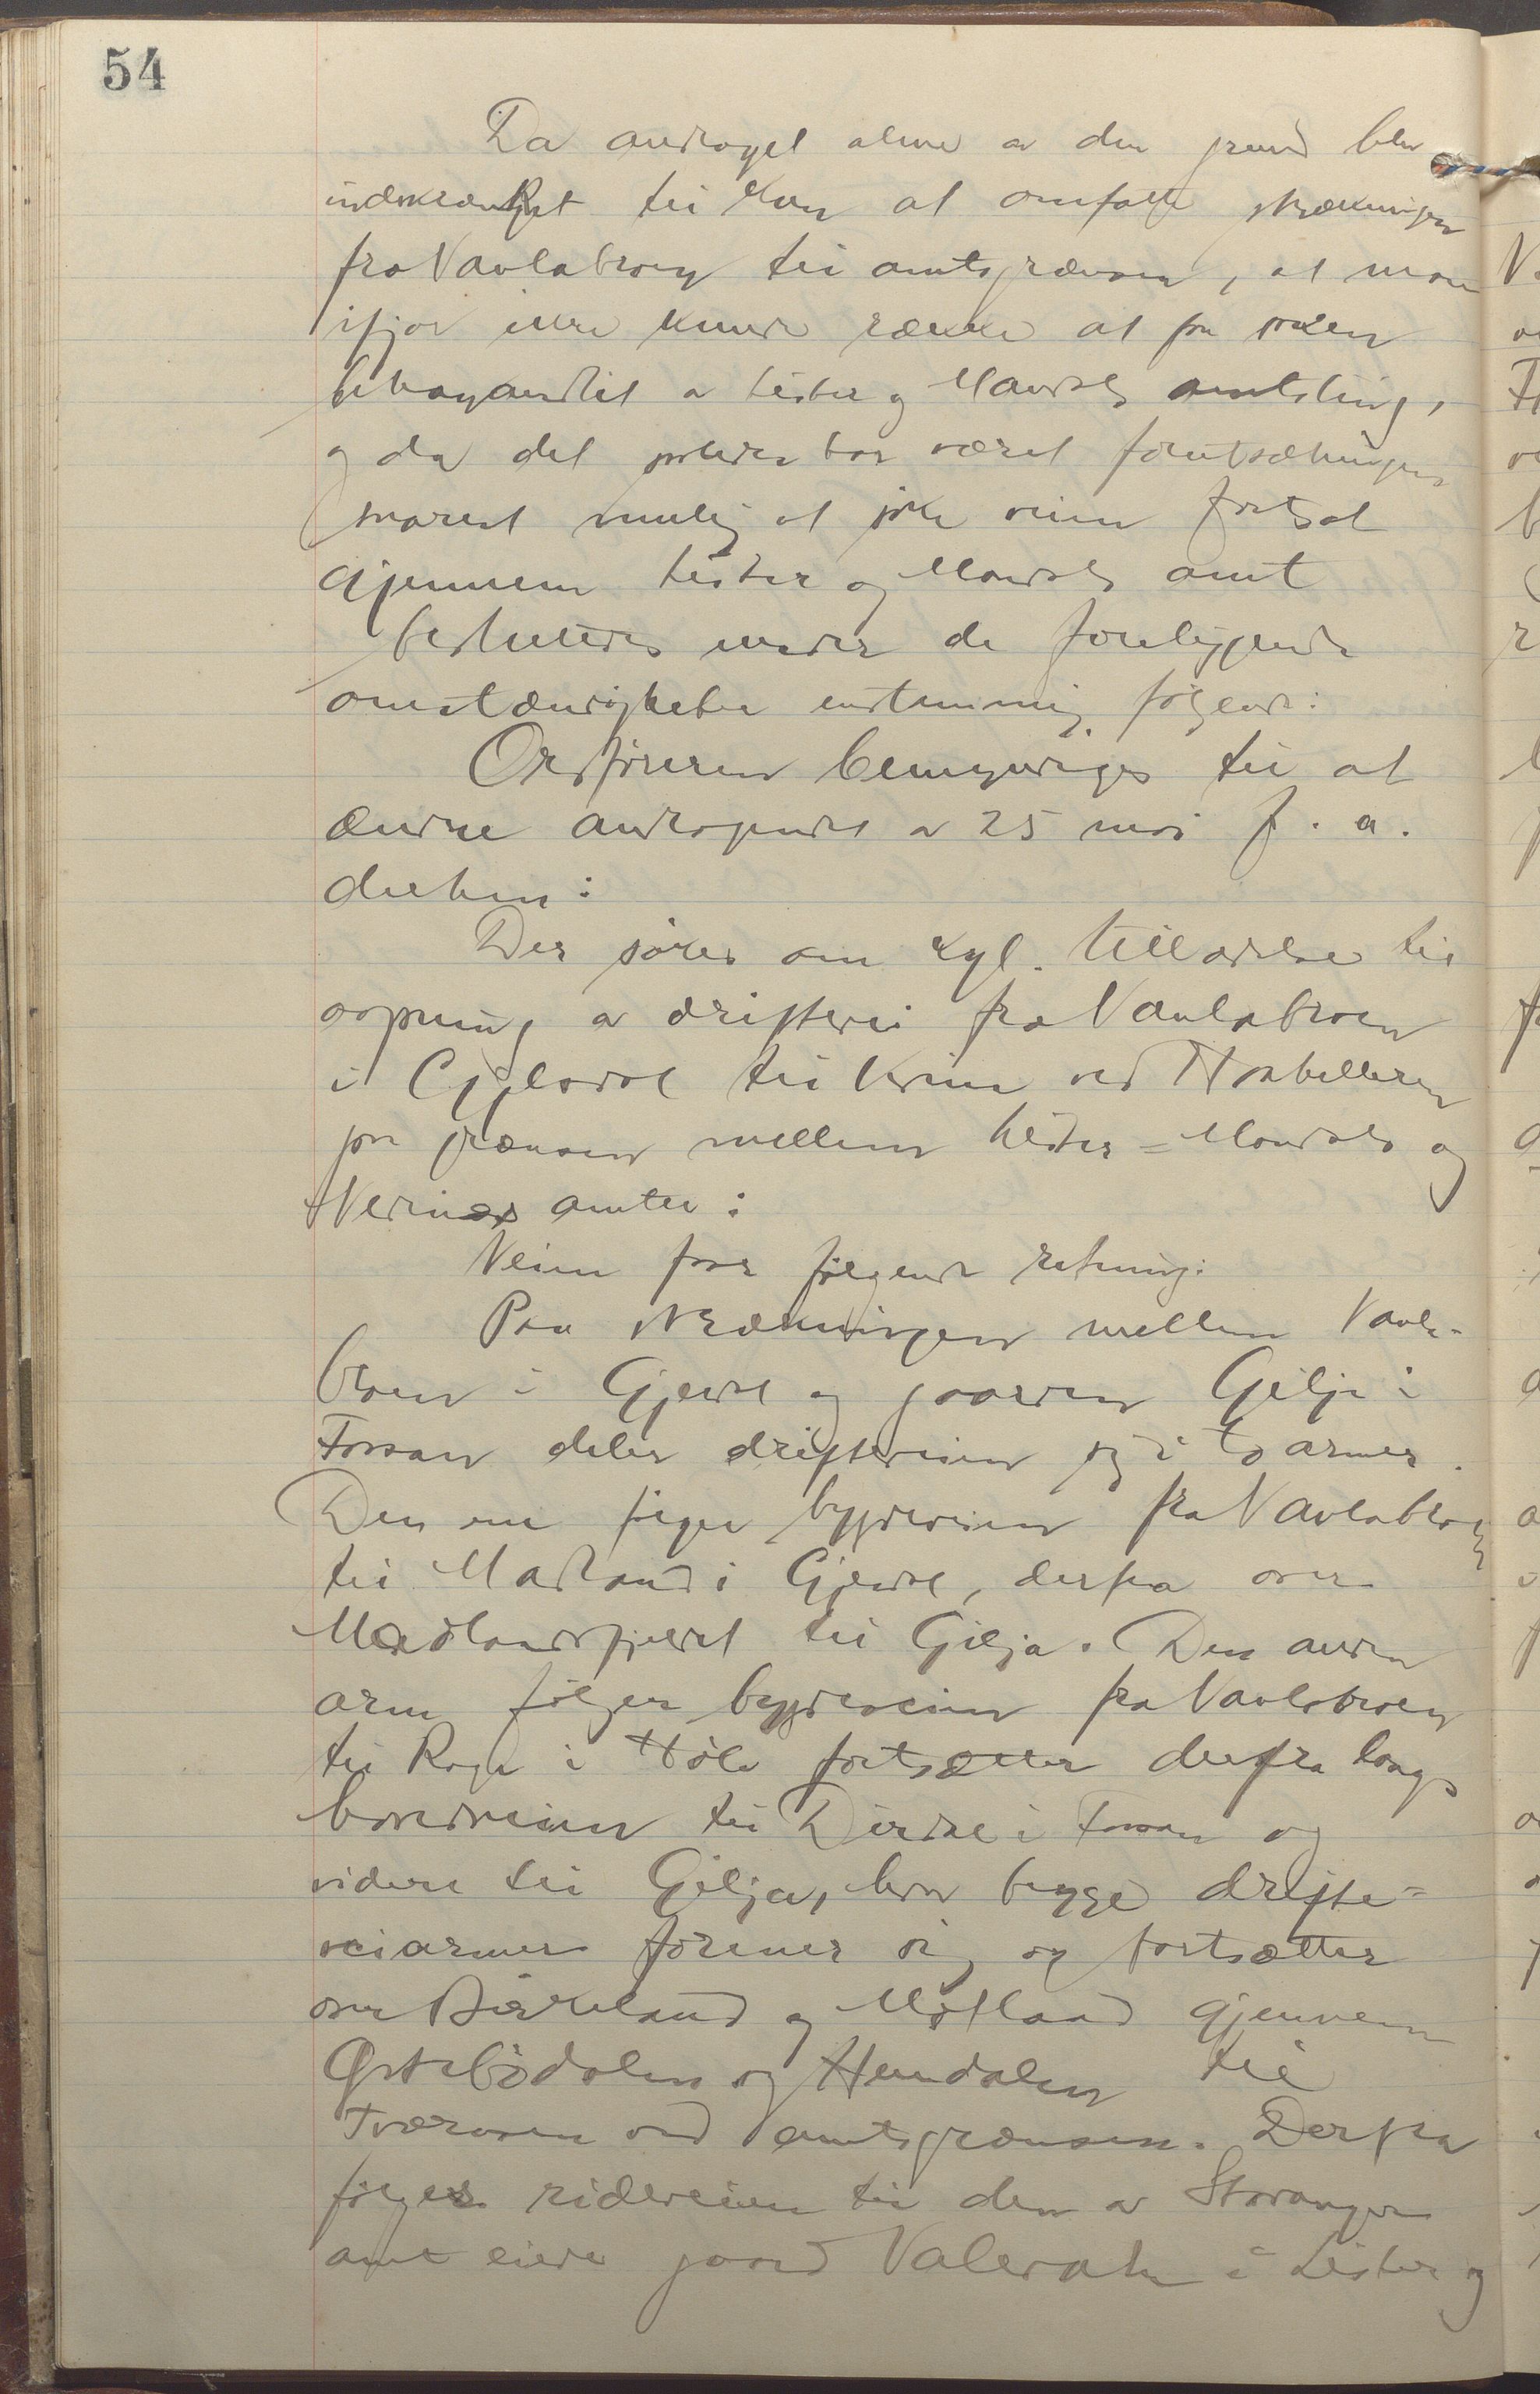 54
Da andraget alene av den grund blev
indskrænket til kun at omfatte strækningen
fra Vaulabroen til amtsgrænsen, at man
ifjor ikke kunde række at faa saken
behandlet av Lister og Mandals amtsting,
og da det hele har været forutsætningen
snarest mulig at søke veien fortsat
gjennem Lister og Mandals amt
besluttedes under de foreliggende
omstændigheter enstemmig følgende:
Ordføreren bemyndiges til at
ændre andragendet av 25 mai f. a.
derhen:
Der søkes om kgl. tilladelse til
aapning av driftevei fra Vaulabroen
i Gjesdal til Kvinen ved
paa grænsen mellem Lister-Mandals og
Nedenæs amter:
Veien faar følgende retning:
Paa strækningen mellem Vaula-
broen i Gjesdal og gaarden Gilja i
Forsan deler drifteveien sig i to armer.
Den ene følger bygdeveien fra Vaulabroen
til Madland i Gjesdal, derfra over
Madlandsfjeldet til Gilja. Den anden
arm følger bygdeveien fra Vaulabroen
til Rage i Høle fortsætter derfra langs
hovedveien til Dirdal i Forsan og
videre til Gilja, hvor begge drifte-
veiarmer forener sig og fortsætter
over Birkeland og Motland gjennem
Østebødalen og Hundalen til
Tværaaen ved amtsgrænsen. Derfra
følges rideveien til den av Stavanger
amt eiede gaard Valevatn i Lister og